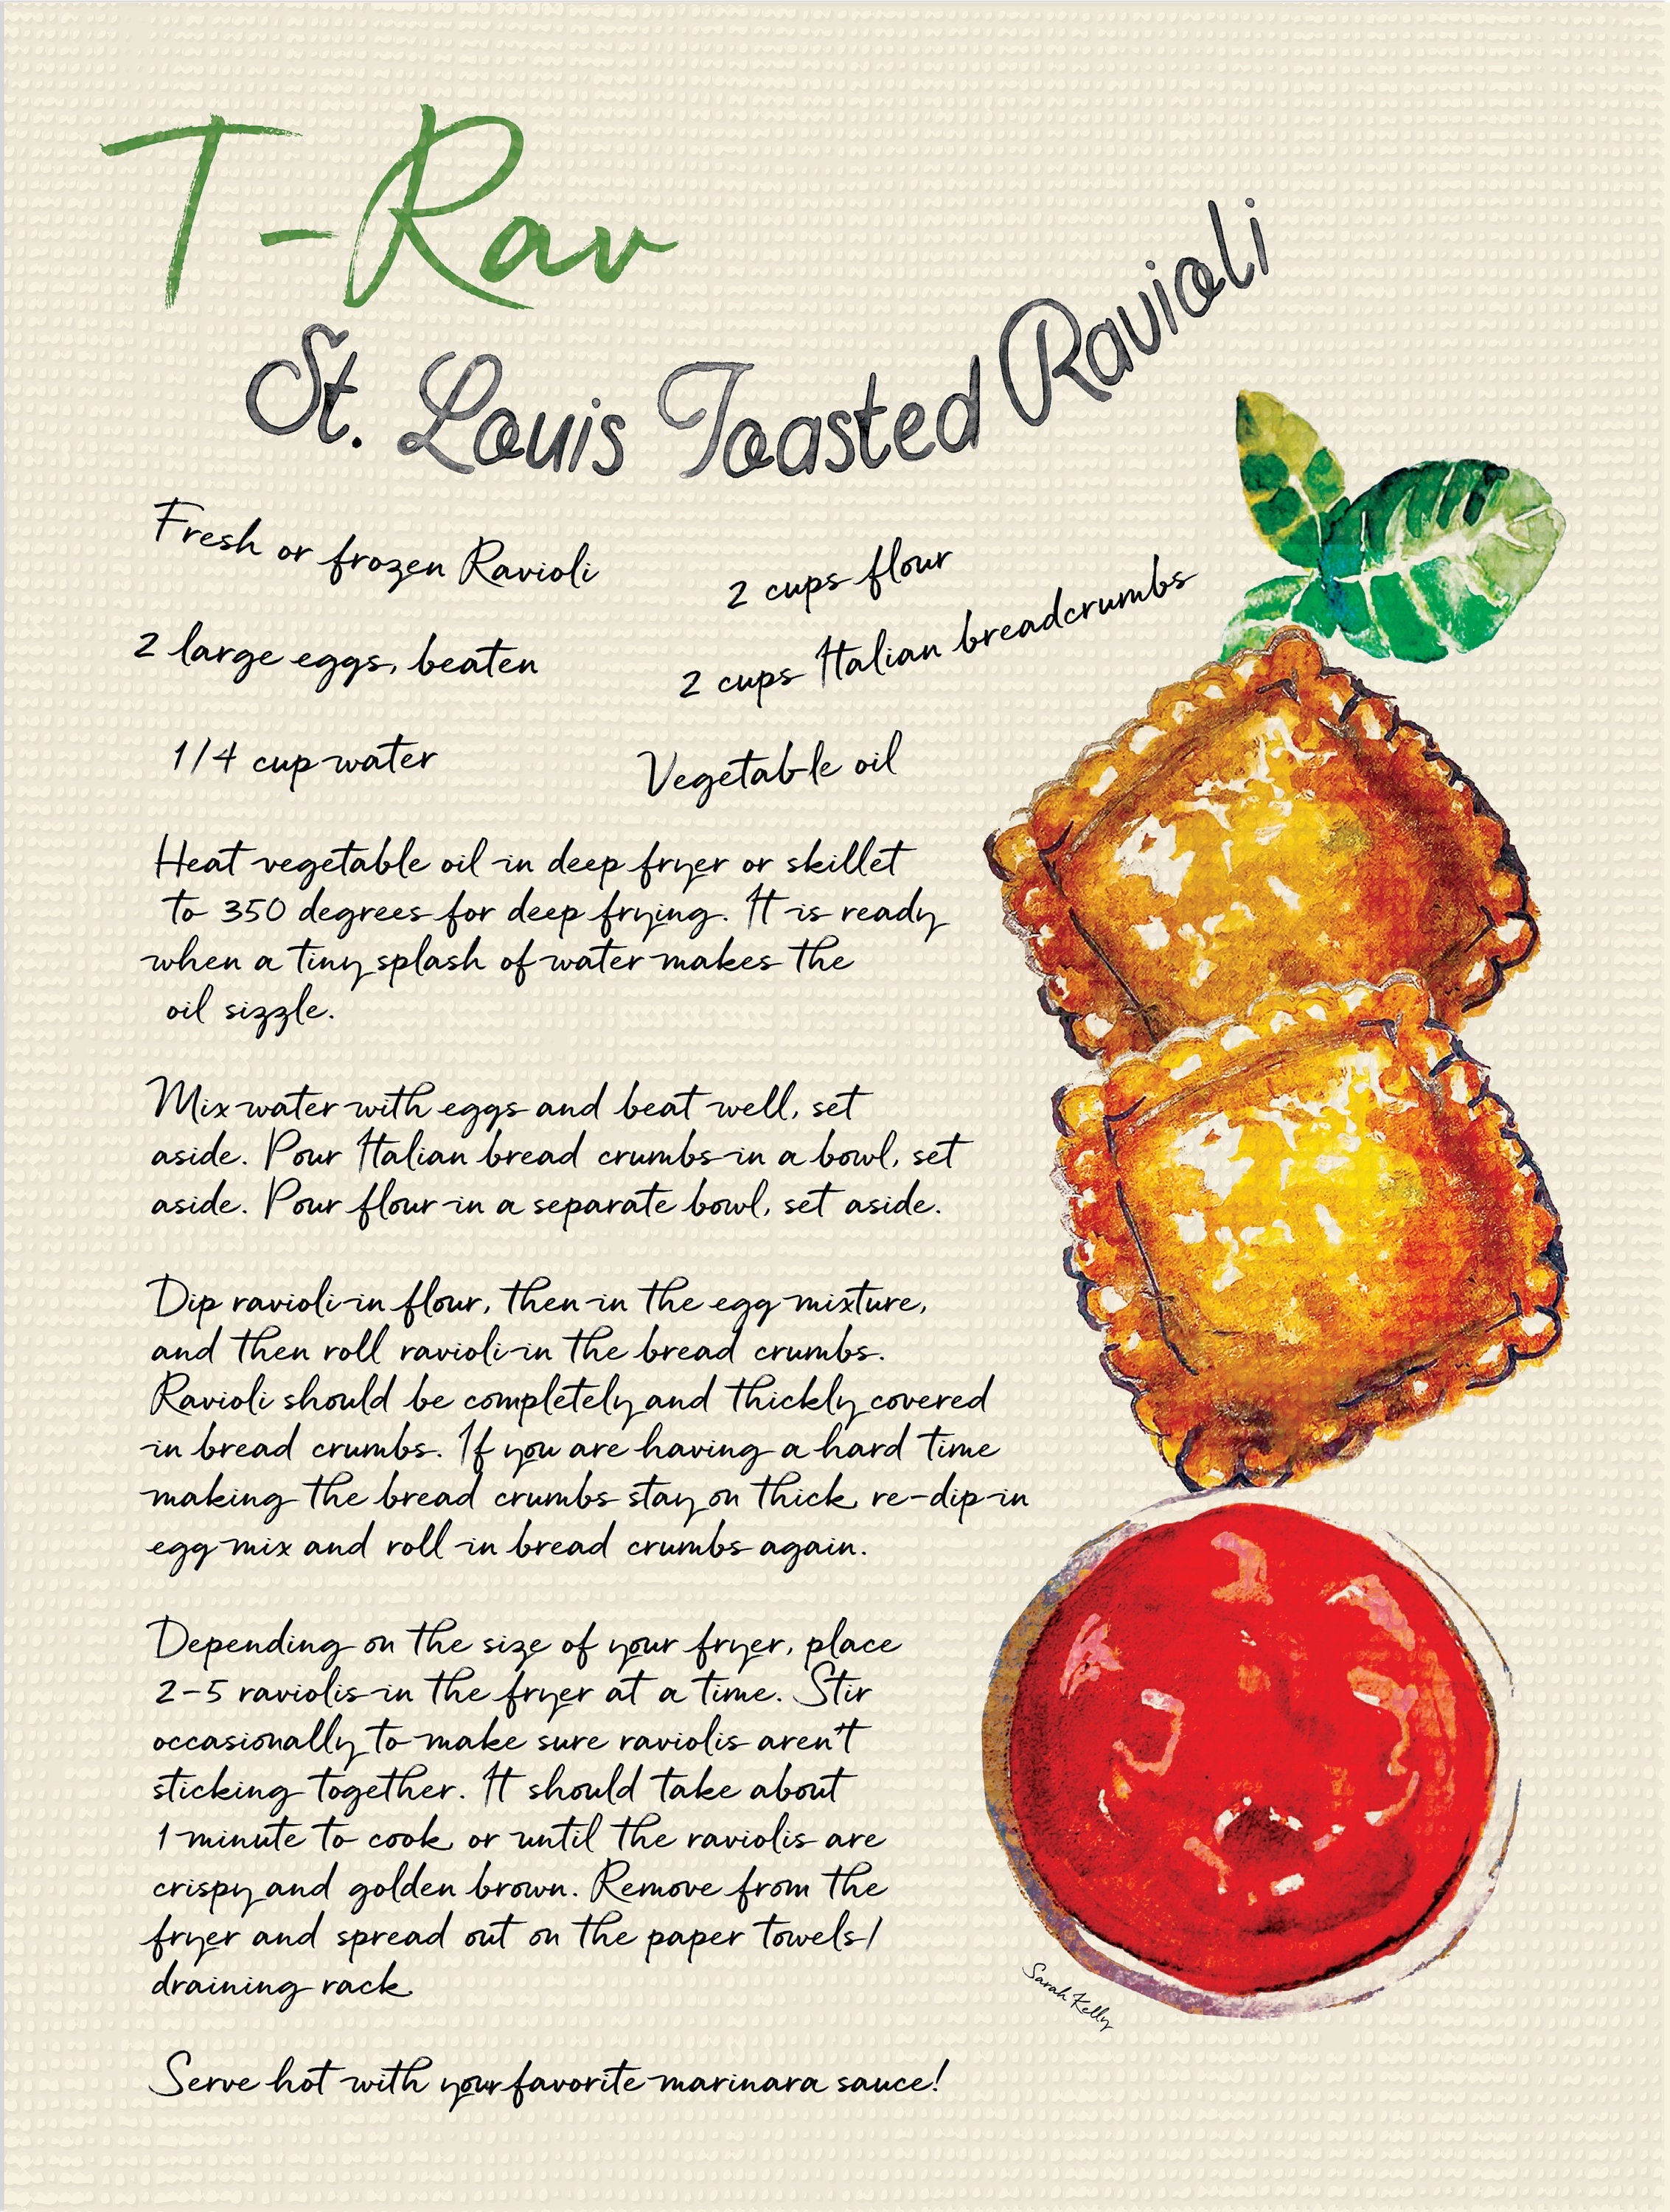 T-Rav
St. Louis Toasted Ravioli
Fresh or frozen Ravioli
2 large eggs, beaten
1/4 cup water
2 cups flour
2 cups Italian breadcrumbs
Vegetable oil
Heat vegetable oil in deep fryer or skillet
to 350 degrees for deep frying. It is ready
when a tiny splash of water makes the
oil sizzle.
Mix water with eggs and beat well, set
aside. Pour Italian bread crumbs in a bowl, set
aside. Pour flour in a separate bowl, set aside.
Dip ravioli in flour, then in the egg mixture,
and then roll ravioli in the bread crumbs.
Ravioli should be completely and thickly covered
in bread crumbs. If you are having a hard time
making the bread crumbs stay on thick, re-dip in
egg mix and roll in bread crumbs again.
Depending on the size of your fryer, place
2-5 raviolis in the fryer at a time. Stir
occasionally to make sure raviolis aren't
sticking together. It should take about
1 minute to cook, or until the raviolis are
crispy and golden brown. Remove from the
fryer and spread out on the paper towels/
draining rack.
Serve hot with your favorite marinara sauce!
Sarah Kelly